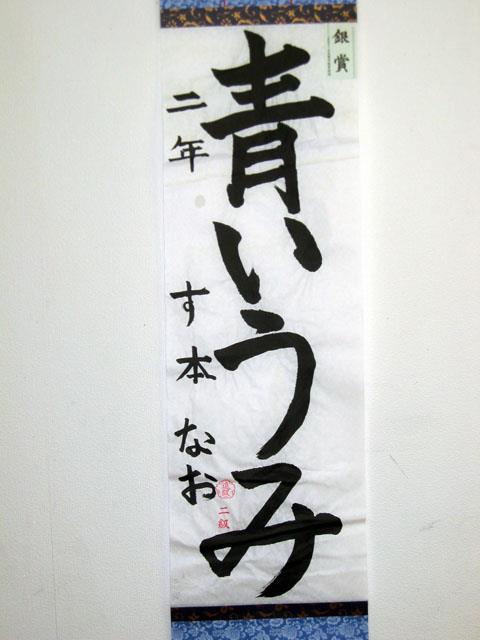 銀賞
青いうみ
二年 す本 なお
二級